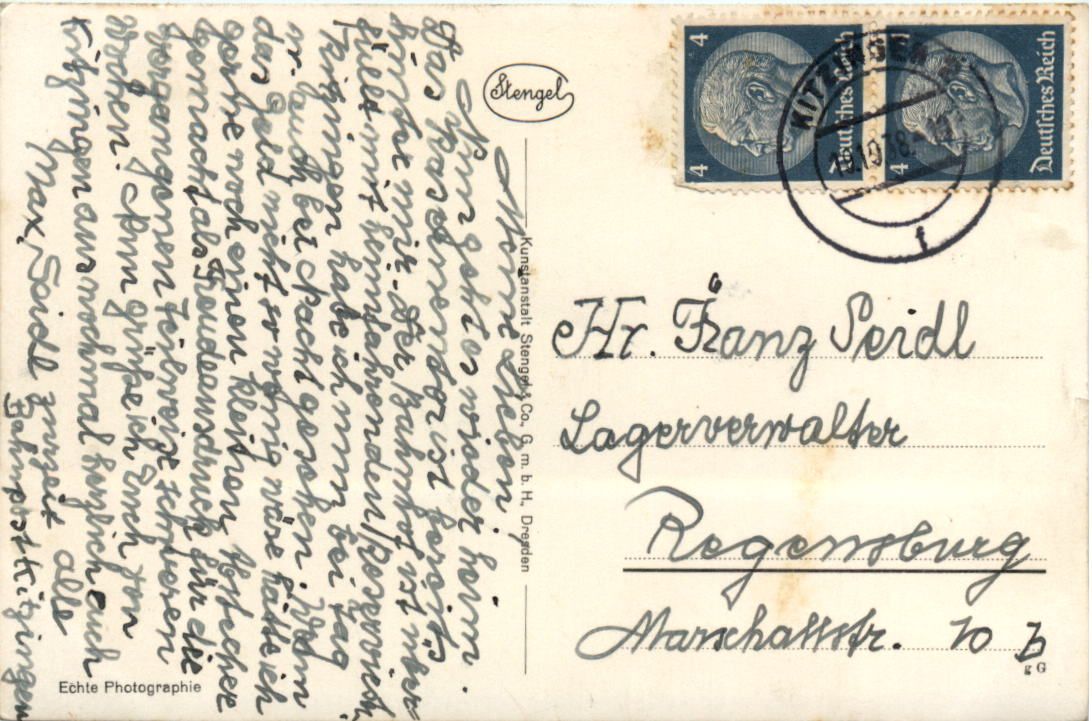 Meine Lieben!
Nun gehts wieder heim.
Das Kaschrendorf ist bereits
hinter mir. Der Bahnhof ist über-
füllt mit heimfahrenden Reservisten.
Kitzingen habe ich nun bei Tag
u. auch bei Nacht gesehen. Wenn
das Geld nicht so wenig wäre hätte ich
gerne noch einen kleinen Abstecher
gemacht als Freudeausdruck für die
vergangenen teilweise schweren
Wochen. Nun grüße ich Euch von
Kitzingen aus nochmal herzlich auch
Max. Seidl zurzeit alle
Bahnpost Kitzingen
Stengel
Kunstanstalt Stengel & Co., G. m. b. H., Dresden
Echte Photographie
4 Deutsches Reich 4
4 Deutsches Reich 4
KITZINGEN 2
f
Hr. Franz Seidl
Lagerverwalter
Regensburg
Marschallstr. 10 b
g G